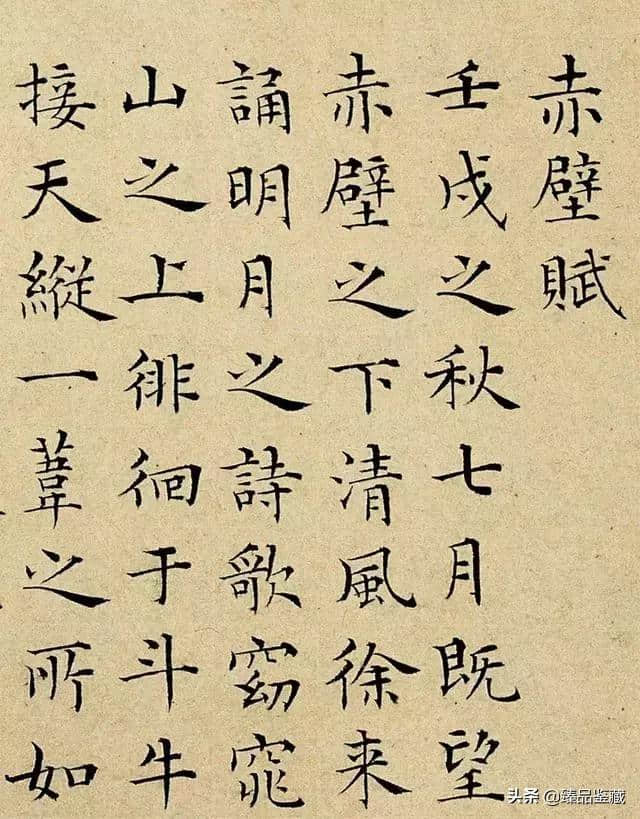 赤壁賦
壬戌之秋七月既望
赤壁之下清風徐来
誦明月之詩歌窈窕
山之上徘徊于斗牛
接天縱一葦之所如
头条 @臻品鉴藏